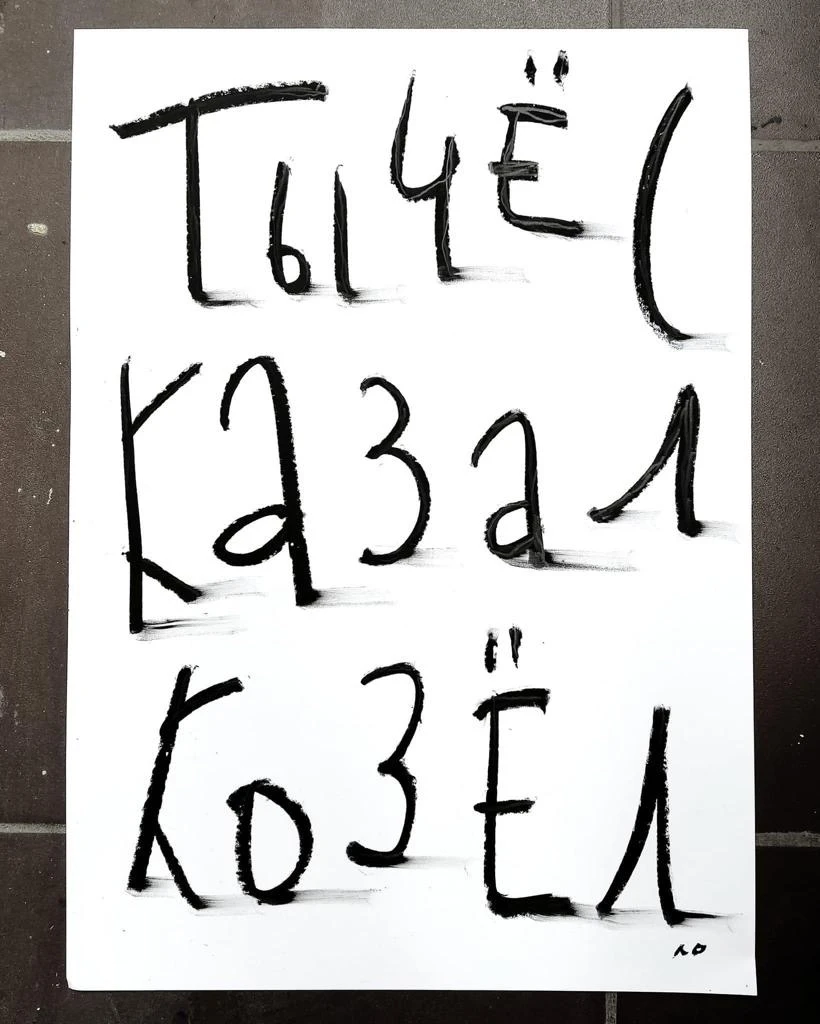 ТыЧЁ(
каЗал
КоЗЁл